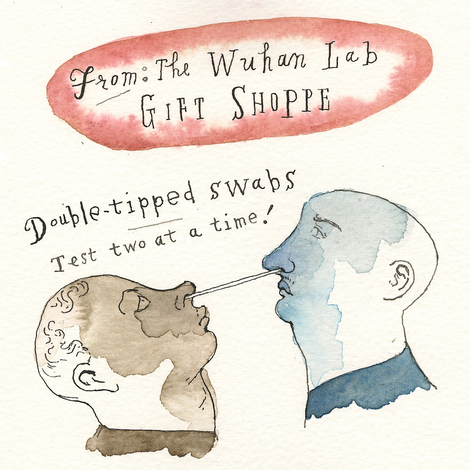 From: The Wuhan Lab
Gift Shoppe
Double-tipped swabs
Test two at a time!